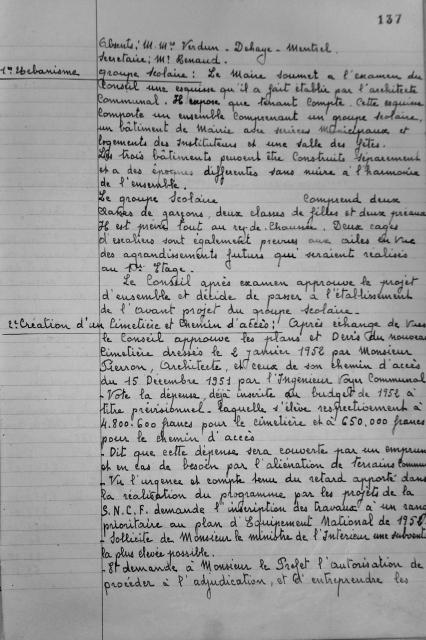 137
Absents: M. Mrs Verdun - Dehaye - Mentrel.
Secrétaire; Mr Renaud.
1º Urbanisme groupe scolaire: Le Maire soumet a l'examen du
Conseil une esquisse qu'il a fait établir par l'architecte
Communal. Il expose que tenant compte. Cette esquisse
comporte un ensemble comprenant un groupe scolaire,
un bâtiment de Mairie avec services Municipaux et
logements des Instituteurs et une salle des fêtes.
Les trois bâtiments peuvent être Construits séparément
et a des époques différentes sans nuire à l'harmonie
de l'ensemble.
Le groupe Scolaire Comprend deux
Classes de garçons, deux classes de filles et deux préaux
Il est prévu tout au rez-de-Chaussée. Deux cages
d'escaliers sont également prévues aux ailes en vue
des agrandissements futurs qui seraient réalisés
au 1er Etage.
Le Conseil après examen approuve le projet
d'ensemble et décide de passer à l'établissement
de l'avant projet du groupe scolaire.
2º Création d'un Cimetière et Chemin d'accès: Après échange de vues
le Conseil approuve les plans et Devis du nouveau
Cimetière dressés le 2 janvier 1952 par Monsieur
Pierron, Architecte, et ceux de son chemin d'accès
du 15 Décembre 1951 par l'Ingénieur Voyer Communal
- Vote la dépense, déjà inscrite au budget de 1952 à
titre prévisionnel laquelle s'élève respectivement à
4.800.600 francs pour le cimetière et à 650.000 francs
pour le chemin d'accès
- Dit que cette dépense sera couverte par un emprunt
et en cas de besoin par l'aliénation de terrains commu
- Vu l'urgence et compte tenu du retard apporté dans
la réalisation du programme par les projets de la
S.N.C.F. demande l'inscription des travaux à un rang
prioritaire au plan d'Equipement National de 1952
- Sollicite de Monsieur le ministre de l'Intérieur une subvent
la plus élevée possible.
- Et demande à Monsieur le Préfet l'autorisation de
procéder à l'adjudication, et d'entreprendre les